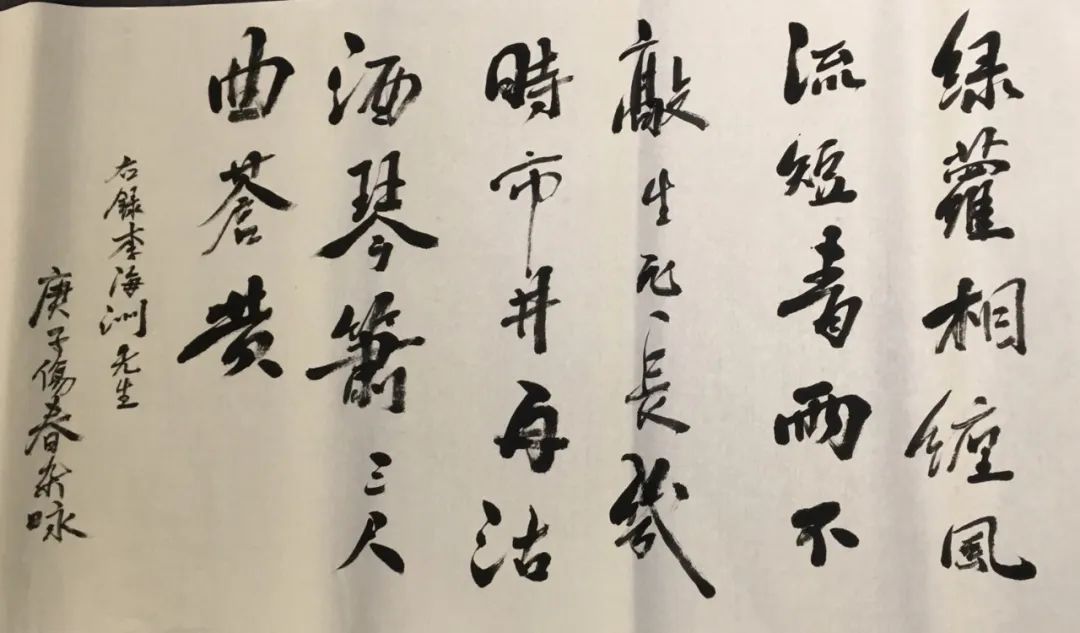 緑蘿相纏風
流短青雨不
敲生死長幾
時市井再沽
酒琴簫三尺
曲蒼黄
右錄李海洲先生
庚子傷春雜咏